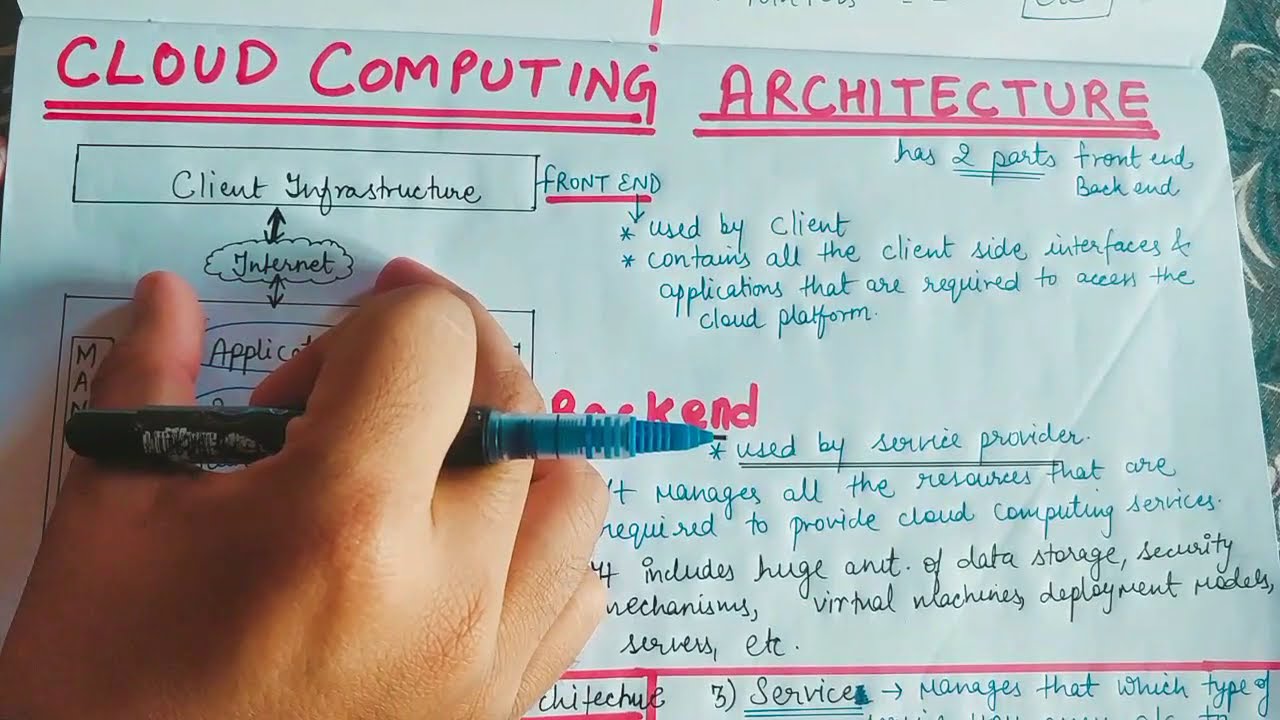 CLOUD COMPUTING ARCHITECTURE
has 2 parts front end
Back end
Client Infrastructure
FRONT END
* used by Client
* contains all the client side interfaces &
applications that are required to access the
cloud platform.
Internet
M
A
N
Backend
* used by service provider.
It manages all the resources that are
required to provide cloud computing services.
It includes huge amt. of data storage, security
mechanisms, virtual machines, deployment models,
servers, etc.
3) Services → Manages that which type of